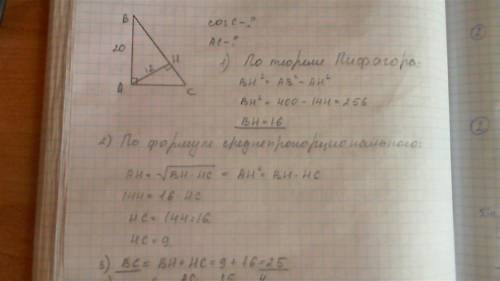 B
cos C-?
20
AC-?
H
12
A
C
1) По теореме Пифагора:
BH² = AB² - AH²
BH² = 400 - 144 = 256
BH = 16
2) По формуле среднепропорционального:
AH = √BH · HC = AH² = BH · HC
144 = 16 · HC
HC = 144:16
HC = 9
3) BC = BH + HC = 9 + 16 = 25